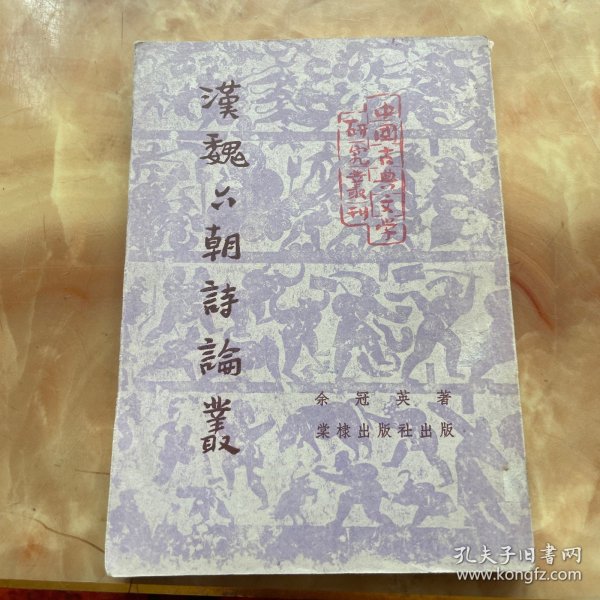 漢魏六朝詩論叢
中国古典文学
研究叢刊
余冠英 著
棠棣出版社出版
孔夫子旧书网
www.kongfz.com